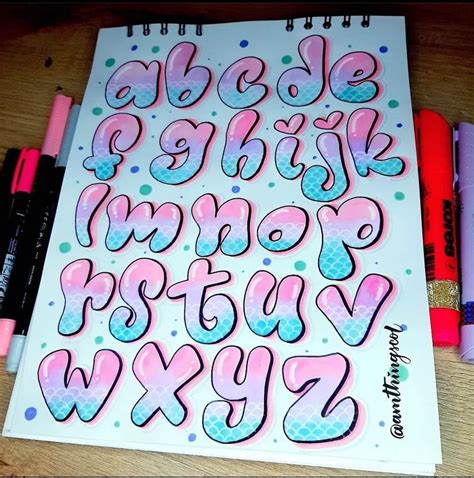 abcde
fghijk
lmnop
rstuv
wxyz
@amthingscol
Kores